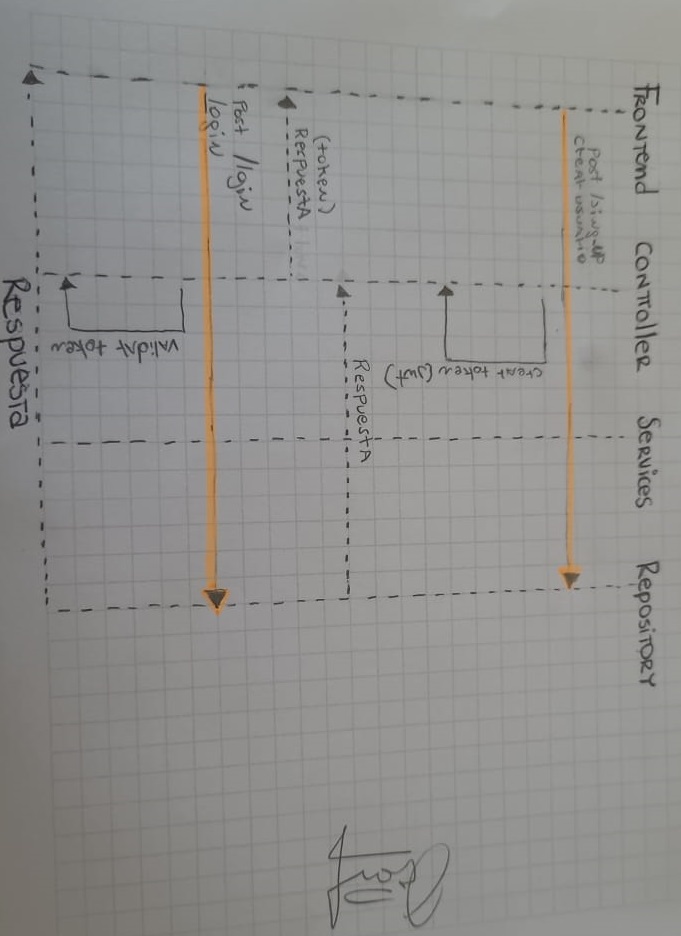 FRONTEND CONTROLLER SERVICES REPOSITORY
Post /sing-up
crear usuario
crear token (jwt)
RespuestA
RespuestA
(token)
Post /lgin
/login
validat token
Respuesta